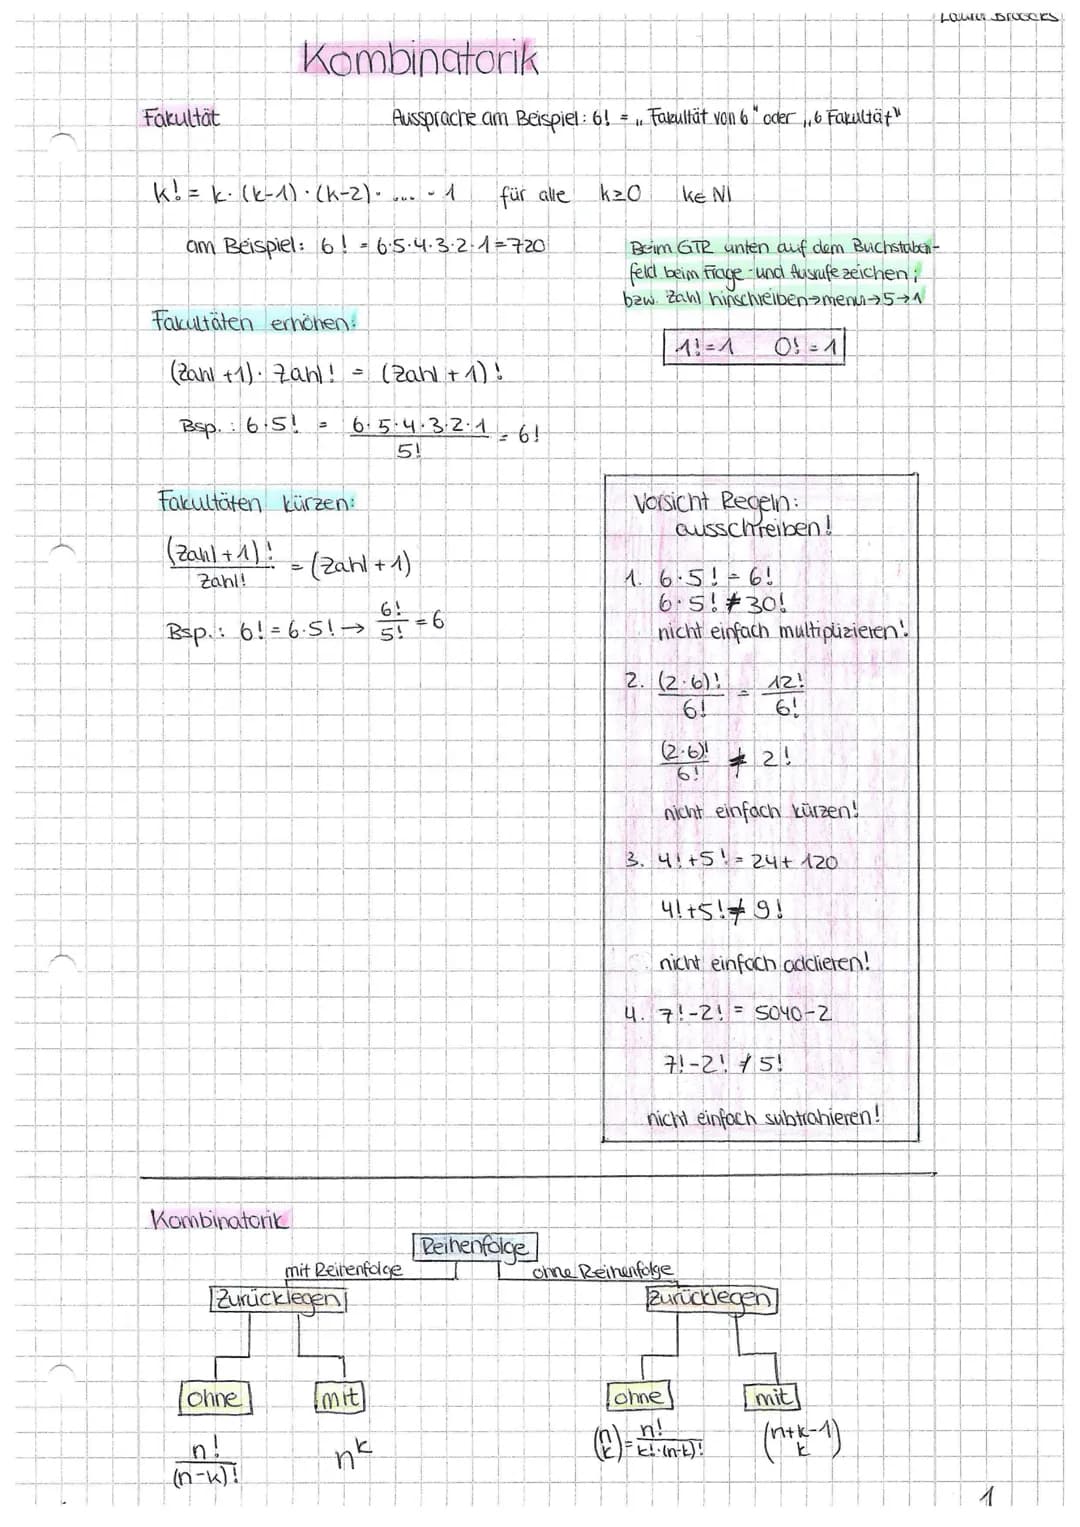 Kombinatorik
Fakultät
Aussprache am Beispiel: 6! = „ Fakultät von 6" oder „6 Fakultät"
k! = k · (k-1) · (k-2) · .... · 1 für alle k≥0 k∈ℕ
am Beispiel: 6! = 6·5·4·3·2·1=720
Beim GTR unten auf dem Buchstaben-
feld beim Frage - und Ausrufezeichen;
bzw. Zahl hinschreiben→menu→5→1
1!=1 0!=1
Fakultäten erhöhen:
(Zahl +1) · Zahl! = (Zahl + 1)!
Bsp. : 6·5! = 6·5·4·3·2·1 / 5! = 6!
Fakultäten kürzen:
(Zahl + 1)! / Zahl! = (Zahl + 1)
Bsp.: 6! = 6·5! → 6! / 5! = 6
Vorsicht Regeln:
ausschreiben!
1. 6·5! = 6!
6·5! ≠ 30!
nicht einfach multiplizieren!
2. (2·6)! / 6! = 12! / 6!
(2·6)! / 6! ≠ 2!
nicht einfach kürzen!
3. 4!+5! = 24+ 120
4!+5! ≠ 9!
nicht einfach addieren!
4. 7!-2! = 5040-2
7!-2! ≠ 5!
nicht einfach subtrahieren!
Kombinatorik
Reihenfolge
mit Reihenfolge ohne Reihenfolge
Zurücklegen Zurücklegen
ohne mit ohne mit
n! / (n-k)! n^k (n k) = n! / k!·(n-k)! (n+k-1 k)
1